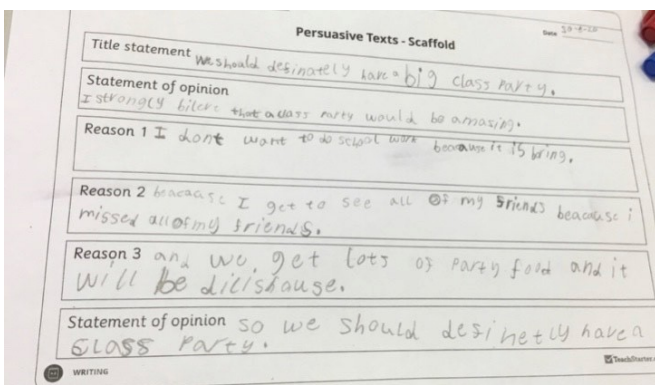 Persuasive Texts - Scaffold
Date 20-5-20
Title statement We should definately have a big class party.
Statement of opinion
I strongly bilere that a class party would be amazing.
Reason 1 I dont want to do school work becarause it is bring.
Reason 2 beacause I get to see all of my friends beacause i
missed all of my friends.
Reason 3 and we get lots of party food and it
will be dilishause.
Statement of opinion so we should desinetly have a
class party.
WRITING
TeachStarter